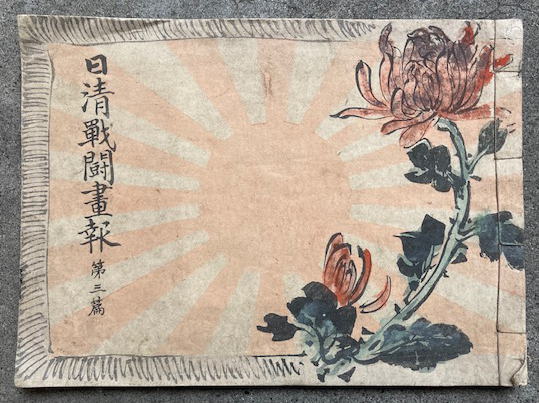 日清戰闘畫報
第三篇